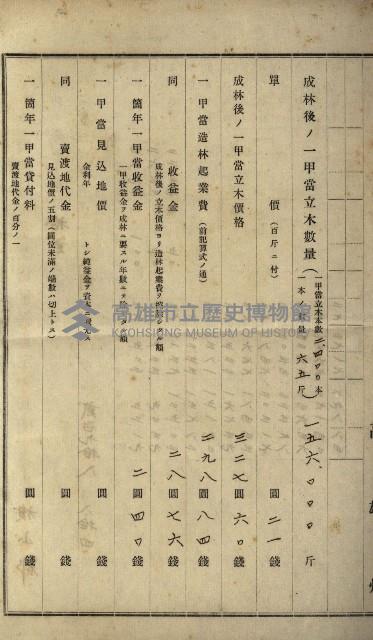 成林後ノ一甲當立木數量（一甲當立木本數二、四〇〇本 一本ノ量六五斤）一五六、〇〇〇斤
單價（百斤ニ付）圓二一錢
成林後ノ一甲當立木價格 三二七圓六〇錢
一甲當造林起業費（前記算式ノ通）二九八圓八四錢
同 收益金 成林後ノ立木價格ヨリ造林起業費ヲ控除シタル額 二八圓七六錢
一箇年一甲當收益金 一甲收益金ヲ成林ニ要スル年數ニテ除シタル額 二圓四〇錢
一甲當見込地價 金利年 トシ純益金ヲ資本ニ還元ス 圓 錢
同 賣渡地代金 見込地價ノ五割（圓位未滿ノ端數ハ切上トス）圓 錢
一箇年一甲當貸付料 賣渡地代金ノ百分ノ一 圓 錢
高雄州
高雄市立歷史博物館
KAOHSIUNG MUSEUM OF HISTORY